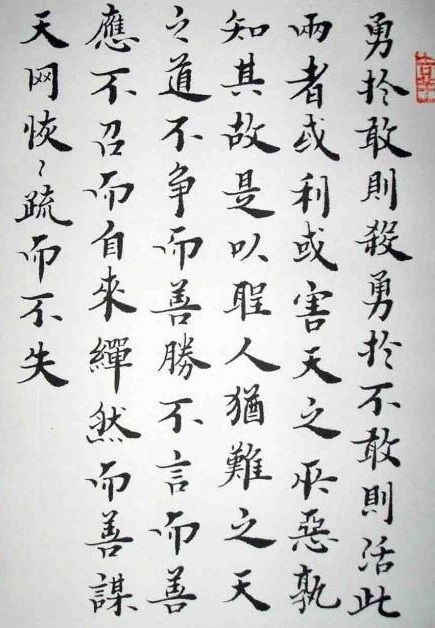 勇於敢則殺勇於不敢則活此
兩者或利或害天之所惡孰
知其故是以聖人猶難之天
之道不争而善勝不言而善
應不召而自來繟然而善謀
天网恢〻疏而不失